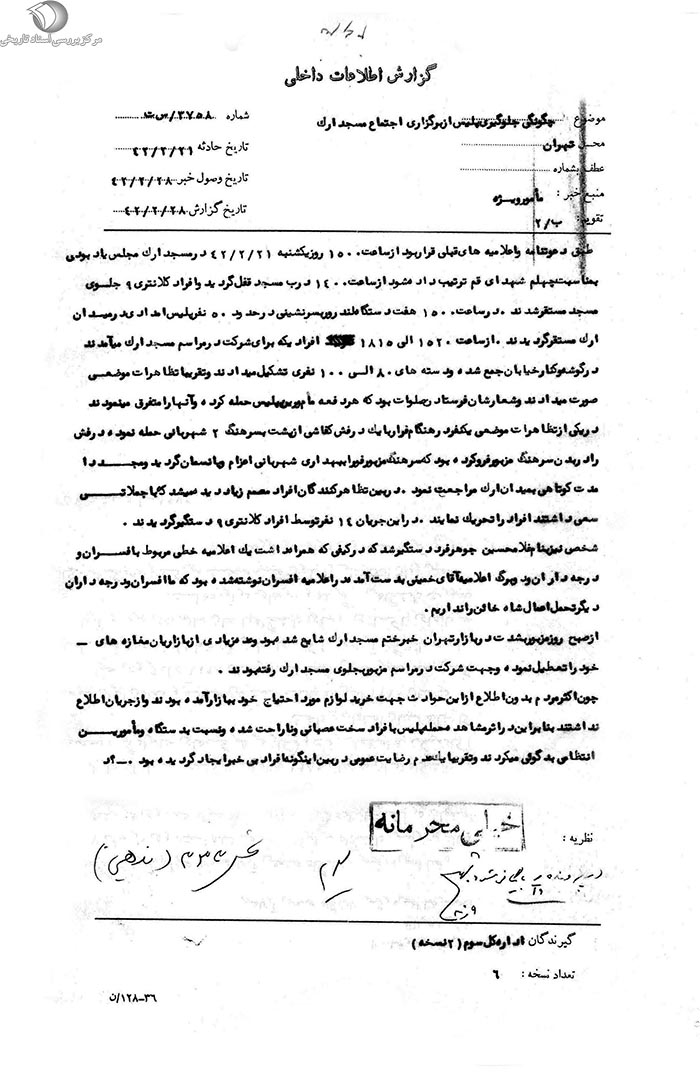 مرکز بررسی اسناد تاریخی
گزارش اطلاعات داخلی
موضوع : چگونگی جلوگیری پلیس از برگزاری اجتماع مسجد ارك
شماره ۳۷۵۸/س ت
محل تهران
تاریخ حادثه ۴۲/۲/۲۱
عطف بشماره
تاریخ وصول خبر ۴۲/۲/۲۸
منبع خبر : مأمور ویژه
تاریخ گزارش ۴۲/۲/۲۸
تقویم : ب/۲
طبق دعوتنامه و اعلامیه های قبلی قرار بود از ساعت ۱۵۰۰ روز یکشنبه ۴۲/۲/۲۱ در مسجد ارك مجلس یادبودی
بمناسبت چهلم شهدای قم ترتیب داده شود از ساعت ۱۴۰۰ درب مسجد قفل گردید و افراد کلانتری ۹ جلوی
مسجد مستقر شدند . در ساعت ۱۵۰۰ هفت دستگاه لندرور سرنشینی در حدود ۵۰ نفر پلیس امدادی در میدان
ارك مستقر گردیدند . از ساعت ۱۵۲۰ الی ۱۸۱۵ افرادیکه برای شرکت در مراسم مسجد ارك میآمدند
در گوشه و کنار خیابان جمع شده و دسته های ۸۰ الی ۱۰۰ نفری تشکیل میدادند و تقریبا تظاهرات موضعی
صورت میدادند و شعارشان فرستادن صلوات بود که هر دفعه مأمورین پلیس حمله کرده و آنها را متفرق مینمودند
در یکی از تظاهرات موضعی یکنفر در هنگام فرار با یك درفش کفاشی از پشت بسرهنگ ۲ شهربانی حمله نموده درفش
را در بدن سرهنگ مزبور فرو کرده بود که سرهنگ مزبور فورا ببهداری شهربانی اعزام و پانسمان گردید و مجددا
مدت کوتاهی بمیدان ارك مراجعت نمود . در بین تظاهرکنندگان افراد مصمم زیاد دیده میشد که با جملاتی
سعی داشتند افراد را تحریك نمایند . در این جریان ۱۴ نفر توسط افراد کلانتری ۹ دستگیر گردیدند .
شخصی نیز بنام غلامحسین جوهرفرد دستگیر شد که در کیفی که همراه داشت یك اعلامیه خطی مربوط با فسران و
درجه داران و دو برگ اعلامیه آقای خمینی بدست آمد در اعلامیه افسران نوشته شده بود که ما افسران و درجه داران
دیگر تحمل اعمال شاه خائن را نداریم .
از صبح روز مزبور بشدت در بازار تهران خبر ختم مسجد ارك شایع شده بود و عده زیادی از بازاریان مغازه های
خود را تعطیل نموده و جهت شرکت در مراسم مزبور بجلوی مسجد ارك رفته بودند .
چون اکثر مردم بدون اطلاع از این حوادث جهت خرید لوازم مورد احتیاج خود ببازار آمده بودند و از جریان اطلاع
نداشتند بنابراین در اثر مشاهده حمله پلیس با افراد سخت عصبانی و ناراحت شده و نسبت بدستگاه و مأمورین
انتظامی بدگوئی میکردند و تقریبا یك عدم رضایت عمومی در بین اینگونه افراد بی خبر ایجاد گردیده بود .
خیلی محرمانه
نظریه :
گیرندگان اداره کل سوم ( ۲ نسخه )
تعداد نسخه : ۶
۳۶-۱۲۸/ن